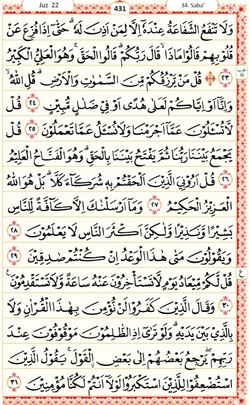 Juz 22 431 34. Saba'
وَلَا تَنْفَعُ الشَّفَاعَةُ عِنْدَهٗٓ اِلَّا لِمَنْ اَذِنَ لَهٗ ۗ حَتّٰىٓ اِذَا فُزِّعَ عَنْ
قُلُوْبِهِمْ قَالُوْا مَاذَا قَالَ رَبُّكُمْ ۗ قَالُوا الْحَقَّ ۚ وَهُوَ الْعَلِيُّ الْكَبِيْرُ
٢٣ قُلْ مَنْ يَّرْزُقُكُمْ مِّنَ السَّمٰوٰتِ وَالْاَرْضِ ۗ قُلِ اللّٰهُ ۙ
وَاِنَّآ اَوْ اِيَّاكُمْ لَعَلٰى هُدًى اَوْ فِيْ ضَلٰلٍ مُّبِيْنٍ ٢٤ قُلْ
لَّا تُسْـَٔلُوْنَ عَمَّآ اَجْرَمْنَا وَلَا نُسْـَٔلُ عَمَّا تَعْمَلُوْنَ ٢٥ قُلْ
يَجْمَعُ بَيْنَنَا رَبُّنَا ثُمَّ يَفْتَحُ بَيْنَنَا بِالْحَقِّ ۗ وَهُوَ الْفَتَّاحُ الْعَلِيْمُ
٢٦ قُلْ اَرُوْنِيَ الَّذِيْنَ اَلْحَقْتُمْ بِهٖ شُرَكَاۤءَ كَلَّا ۗ بَلْ هُوَ اللّٰهُ
الْعَزِيْزُ الْحَكِيْمُ ٢٧ وَمَآ اَرْسَلْنٰكَ اِلَّا كَاۤفَّةً لِّلنَّاسِ
بَشِيْرًا وَّنَذِيْرًا وَّلٰكِنَّ اَكْثَرَ النَّاسِ لَا يَعْلَمُوْنَ ٢٨
وَيَقُوْلُوْنَ مَتٰى هٰذَا الْوَعْدُ اِنْ كُنْتُمْ صٰدِقِيْنَ ٢٩
قُلْ لَّكُمْ مِّيْعَادُ يَوْمٍ لَّا تَسْتَأْخِرُوْنَ عَنْهُ سَاعَةً وَّلَا تَسْتَقْدِمُوْنَ
٣٠ وَقَالَ الَّذِيْنَ كَفَرُوْا لَنْ نُّؤْمِنَ بِهٰذَا الْقُرْاٰنِ وَلَا
بِالَّذِيْ بَيْنَ يَدَيْهِ ۗ وَلَوْ تَرٰىٓ اِذِ الظّٰلِمُوْنَ مَوْقُوْفُوْنَ عِنْدَ
رَبِّهِمْ ۖ يَرْجِعُ بَعْضُهُمْ اِلٰى بَعْضِ ۨالْقَوْلَ ۚ يَقُوْلُ الَّذِيْنَ
اسْتُضْعِفُوْا لِلَّذِيْنَ اسْتَكْبَرُوْا لَوْلَآ اَنْتُمْ لَكُنَّا مُؤْمِنِيْنَ ٣١